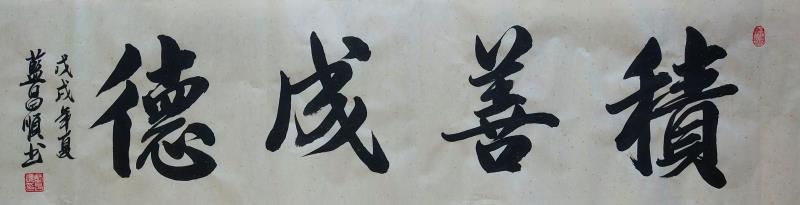 積善成德
戊戌年夏
藍昌順书